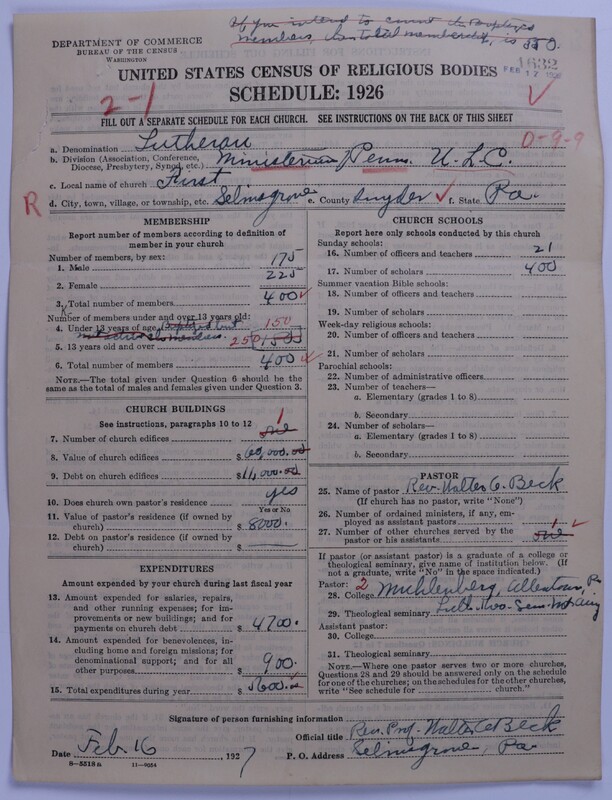 If you intend to count the Baptized
members the total membership, is 550.
DEPARTMENT OF COMMERCE
BUREAU OF THE CENSUS
WASHINGTON
1632
FEB 17
UNITED STATES CENSUS OF RELIGIOUS BODIES
SCHEDULE: 1926
2-1
FILL OUT A SEPARATE SCHEDULE FOR EACH CHURCH. SEE INSTRUCTIONS ON THE BACK OF THIS SHEET
0-9-9
a. Denomination Lutheran
b. Division (Association, Conference, Diocese, Presbytery, Synod, etc.) Ministerium Penn. U. L. C.
c. Local name of church First
R
d. City, town, village, or township, etc. Selinsgrove e. County Snyder f. State Pa.
MEMBERSHIP
Report number of members according to definition of
member in your church
Number of members, by sex:
1. Male 175
2. Female 225
3. Total number of members 400
Number of members under and over 13 years old:
4. Under 13 years of age 150
5. 13 years old and over 250 150
6. Total number of members 400
NOTE.—The total given under Question 6 should be the
same as the total of males and females given under Question 3.
CHURCH BUILDINGS
See instructions, paragraphs 10 to 12
7. Number of church edifices one 1
8. Value of church edifices $60,000.00
9. Debt on church edifices $11,000.00
10. Does church own pastor's residence yes
Yes or No
11. Value of pastor's residence (if owned by
church) $8000.
12. Debt on pastor's residence (if owned by
church) $
EXPENDITURES
Amount expended by your church during last fiscal year
13. Amount expended for salaries, repairs,
and other running expenses; for im-
provements or new buildings; and for
payments on church debt $4700.
14. Amount expended for benevolences, in-
cluding home and foreign missions; for
denominational support; and for all
other purposes $900.
15. Total expenditures during year $5600.
CHURCH SCHOOLS
Report here only schools conducted by this church
Sunday schools:
16. Number of officers and teachers 21
17. Number of scholars 400
Summer vacation Bible schools:
18. Number of officers and teachers
19. Number of scholars
Week-day religious schools:
20. Number of officers and teachers
21. Number of scholars
Parochial schools:
22. Number of administrative officers
23. Number of teachers—
a. Elementary (grades 1 to 8)
b. Secondary
24. Number of scholars—
a. Elementary (grades 1 to 8)
b. Secondary
PASTOR
25. Name of pastor Rev. Walter C. Beck
(If church has no pastor, write "None")
26. Number of ordained ministers, if any, em-
ployed as assistant pastors
27. Number of other churches served by the
pastor or his assistants one 1
If pastor (or assistant pastor) is a graduate of a college or
theological seminary, give name of institution below. (If
not a graduate, write "No" in the space indicated.)
Pastor: 2
28. College Muhlenberg, Allentown, Pa
29. Theological seminary Luth. Theo. Sem. Mt Airy
Assistant pastor:
30. College
31. Theological seminary
NOTE.—Where one pastor serves two or more churches,
Questions 28 and 29 should be answered only on the schedule
for one of the churches; on the schedules for the other churches,
write "See schedule for church."
Signature of person furnishing information
Official title Rev. Prof. Walter C Beck
Date Feb. 16, 1927 P. O. Address Selinsgrove, Pa.
8-5518 a 11-9054